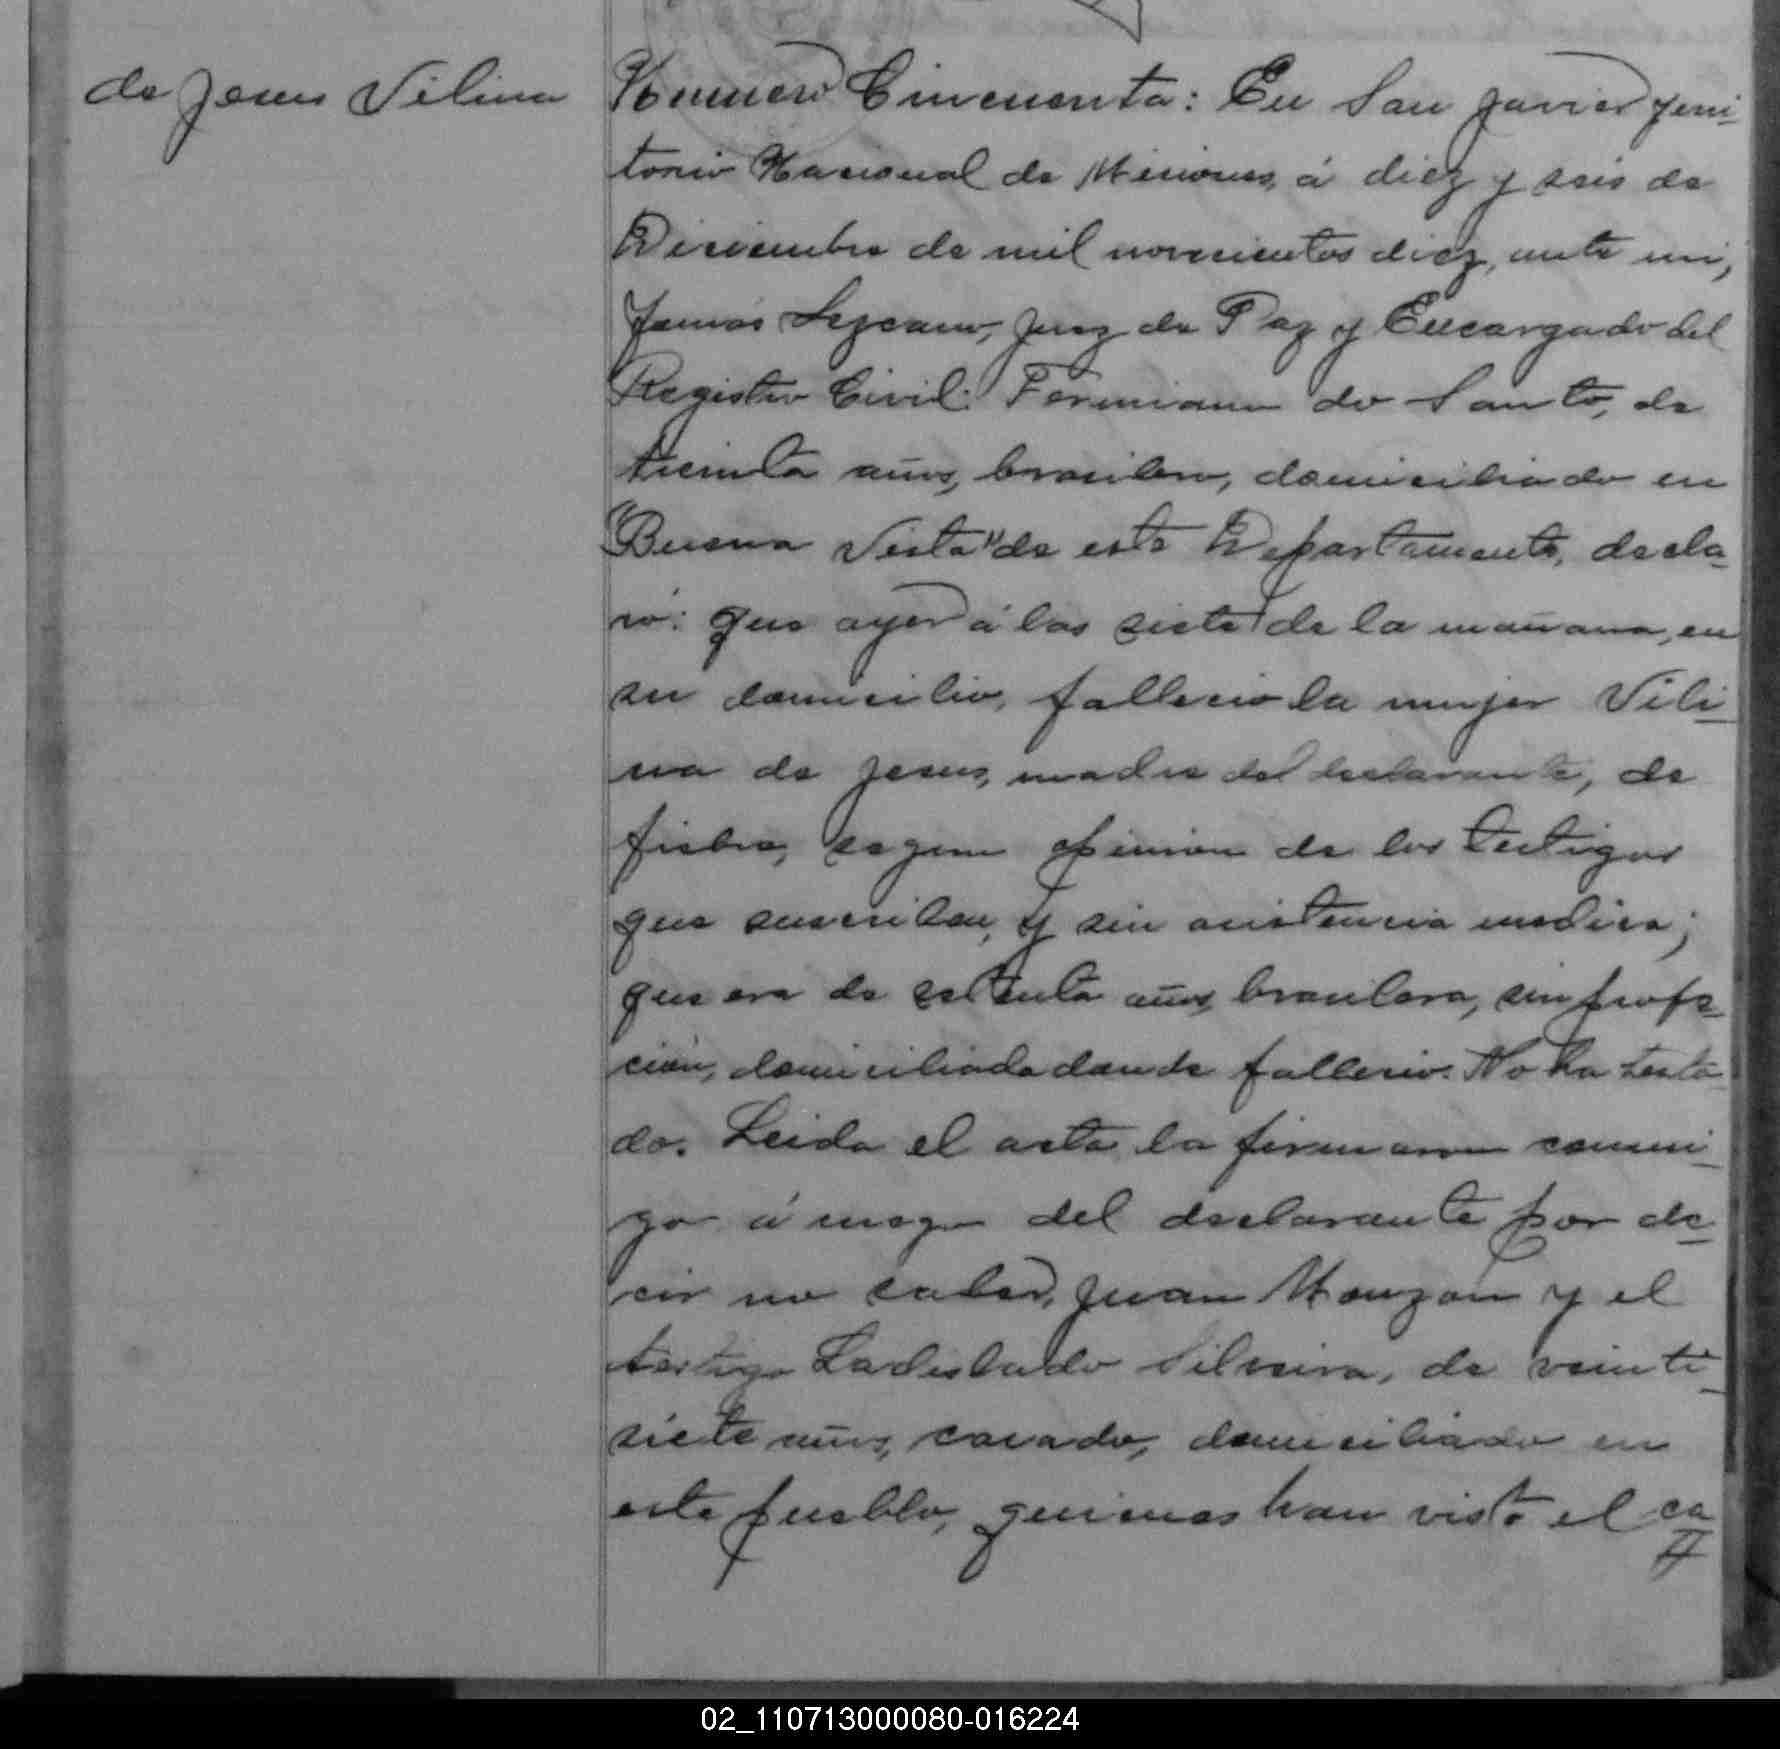 de Jesus Vilina
Numero Cincuenta: En San Javier Terri-
torio Nacional de Misiones, á diez y seis de
Diciembre de mil novecientos diez, ante mi,
Tomás Lezcano, Juez de Paz y Encargado del
Registro Civil: Fermiano do Santo, de
treinta años, brasilero, domiciliado en
"Buena Vista" de este Departamento, decla-
ró: Que ayer á las siete de la mañana, en
su domicilio, fallecio la mujer Vili-
na de Jesus, madre del declarante, de
fiebre, segun opinion de los testigos
que suscriben, y sin asistencia medica;
que era de setenta años, brasilera, sin profe-
ción, domiciliada donde fallecio. No ha testa
do. Leida el acta la firmaron conmi-
go á ruego del declarante por de-
cir no saber, Juan Monzón y el
testigo Ladislado Silveira, de veinti-
siete años, casado, domiciliado en
este pueblo, quienes han visto el ca
02_110713000080-016224